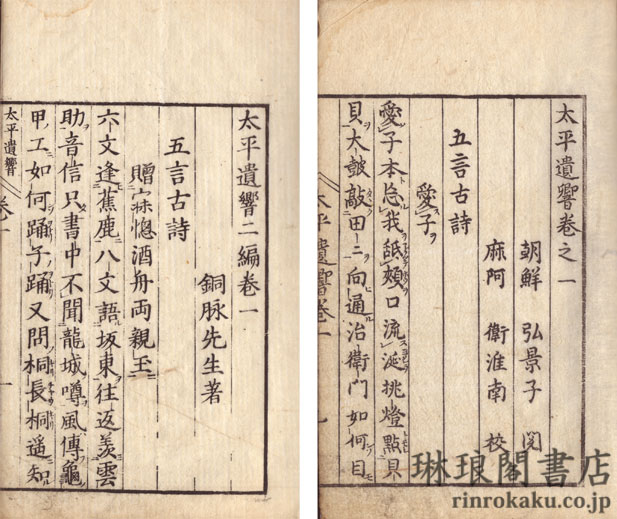 太平遺響卷之一
朝鮮 弘景子 閲
麻阿 衛淮南 校
五言古詩
愛子
愛子本忘我舐頬口流涎挑燈點貝
貝大皷敲田二向通治衛門如何目
太平遺響卷一
太平遺響二編卷一
銅脉先生著
五言古詩
贈寐惚酒舟両親玉
六文逢蕉鹿八文語坂東往返羨雲
助音信只書中不聞龍城噂風傳龜
甲工如何踊子踊又問桐長桐遥知
太平遺響
卷一
一
琳琅閣書店
rinrokaku.co.jp